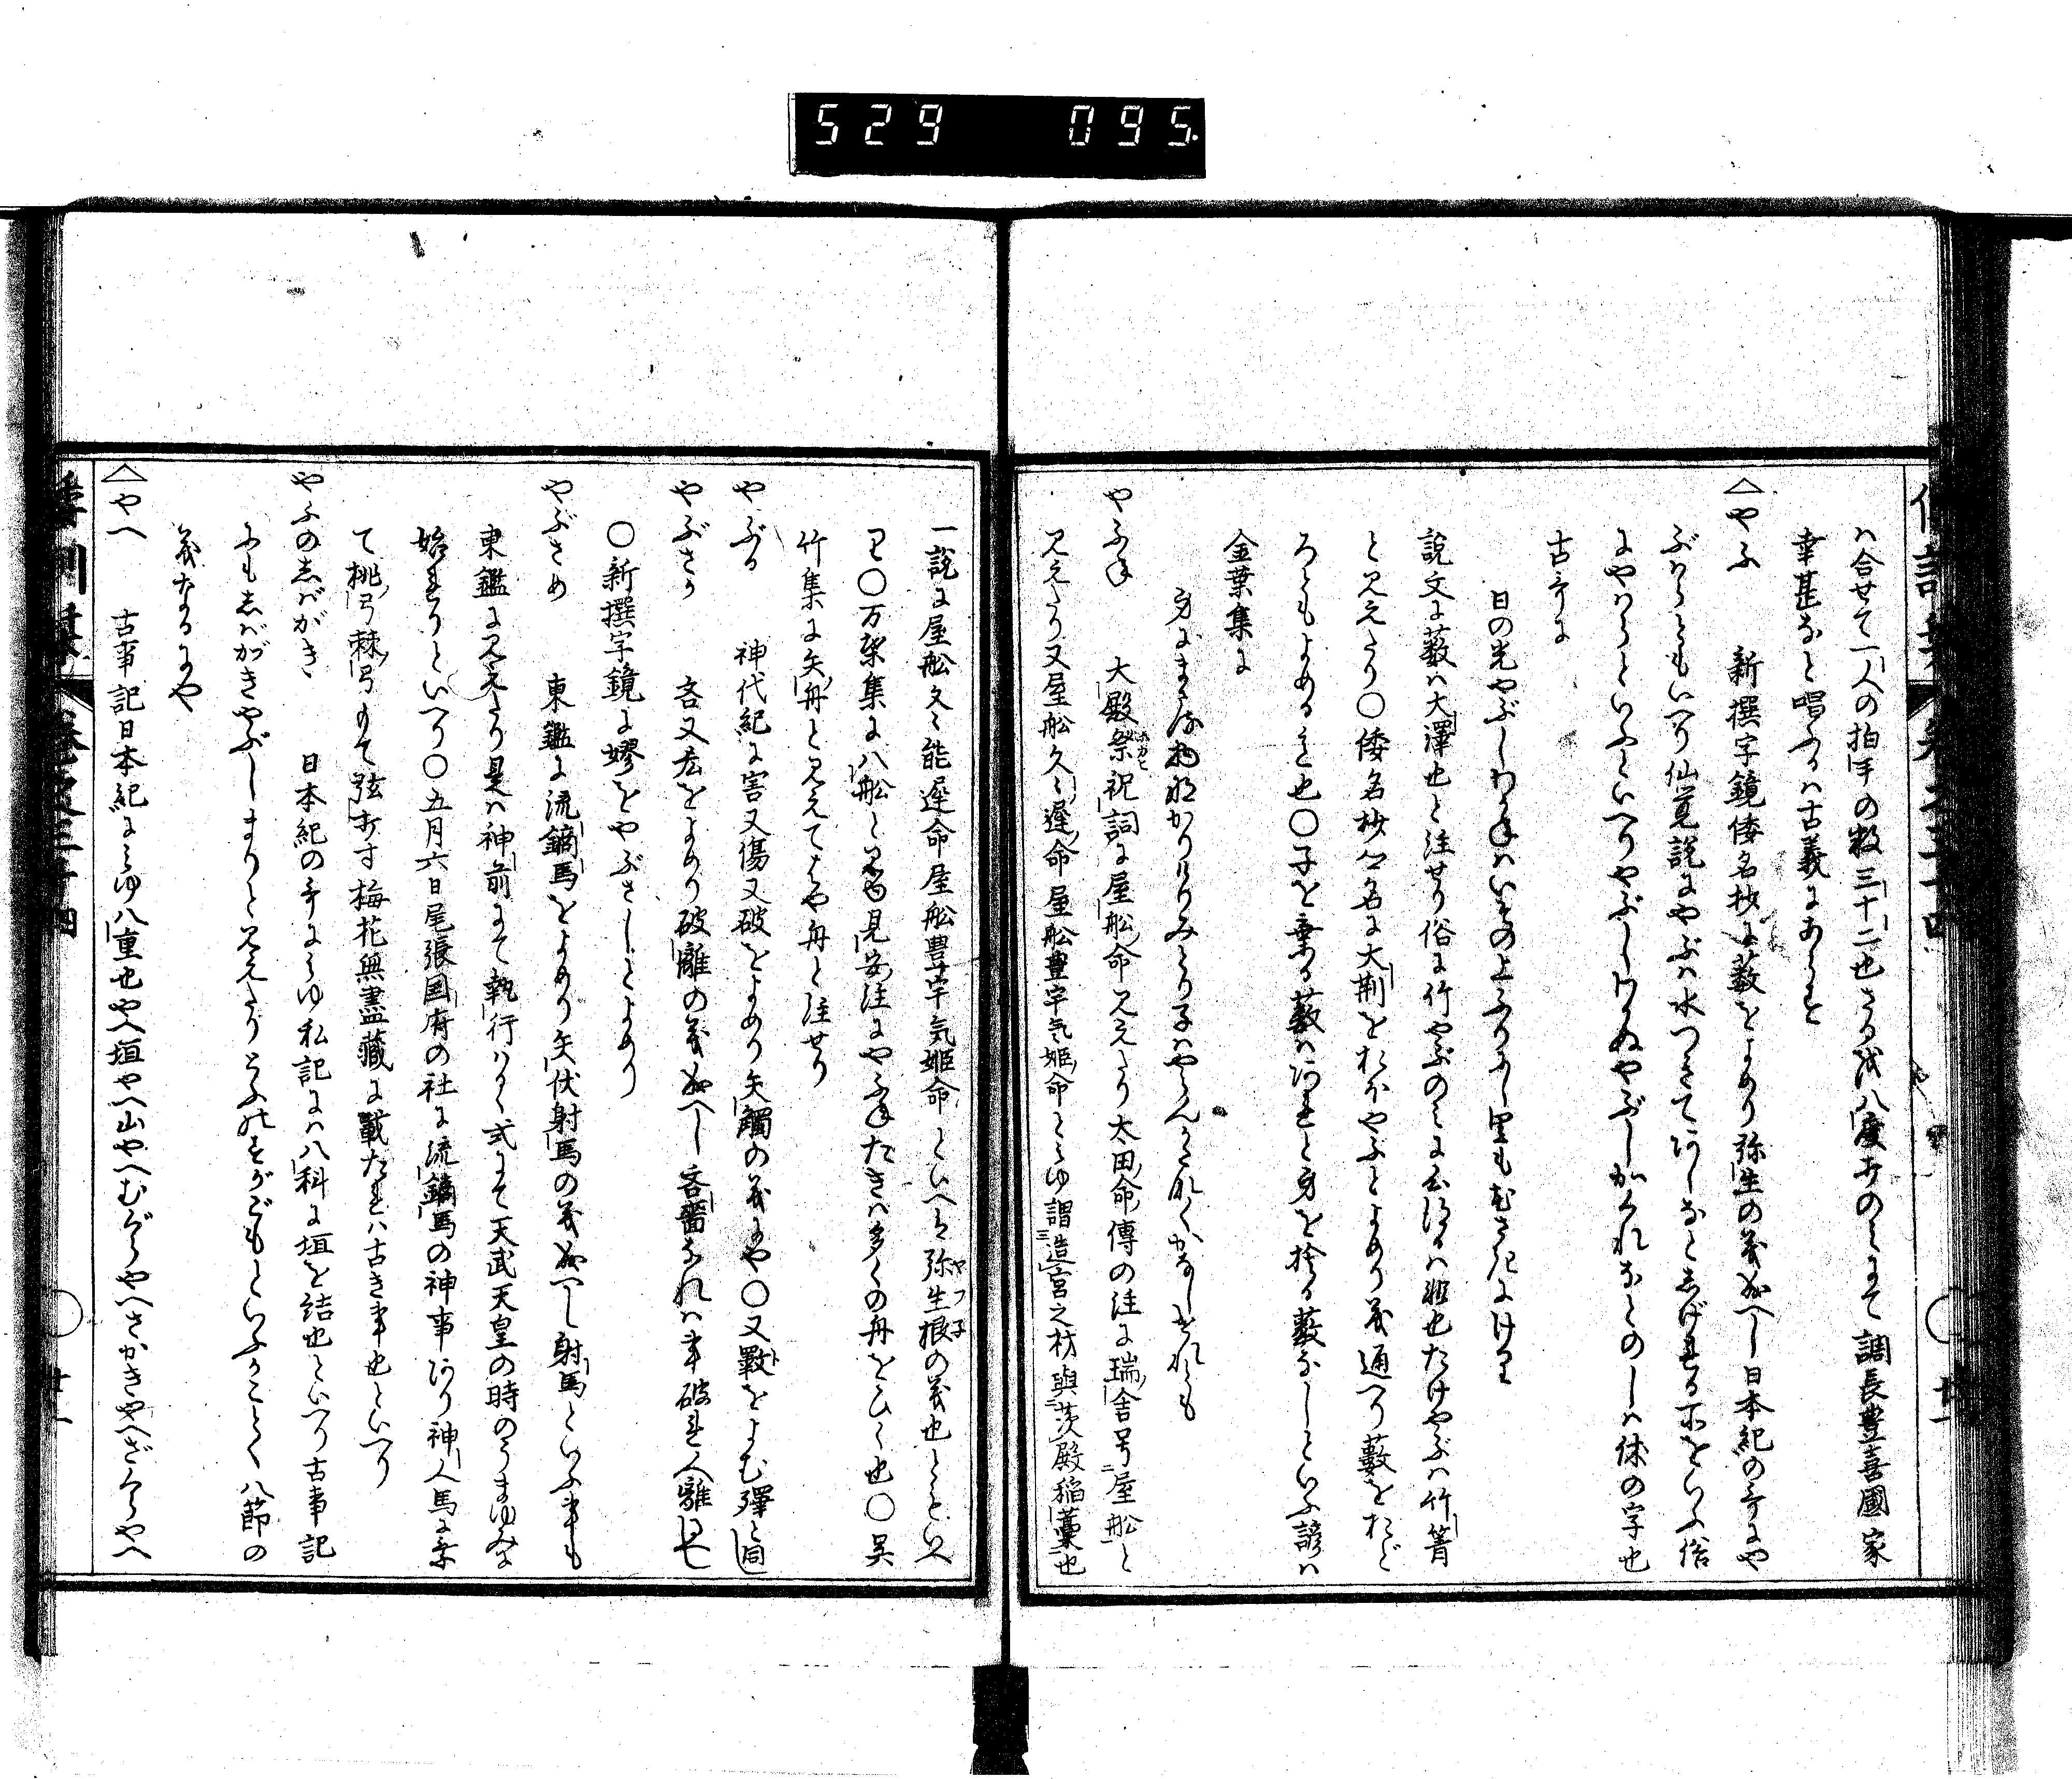 529 095.
は合せて一人の拍手の数三十二也さる我八度すのミにて調長豊喜國家
幸甚なと唱ふるハ古義にあらす
△やふ 新撰字鏡倭名抄に薮をよめり弥生の義なるへし日本紀の哥にや
ぶはらともいへり仙覚説にやぶハ水つきてあしなとしげれる所をいふ俗
にやはらといふといへりやぶしわかぬやぶしかくれなとのしハ休の字也
古哥に
日の光やぶしわかねはいその上ふりにし里も花さきにけり
説文に薮ハ大澤也と注せり俗に竹やぶのミに云ハ非也たけやぶハ竹筲
と見えたり○倭名抄に大荆をおほやぶとよめり義通へり薮をおど
ろともよめる是也○子を棄る薮ハあれと身を捨る薮なしといふ諺ハ
金葉集に
身にまさる物なかりけりみとり子ハやらんかたなくかなしけれとも
やふね 大殿祭祝詞に屋船命見えたり太田命傳の注に瑞舎号屋船と
見えたり又屋船久々遅命屋船豊宇気姫命とミゆ謂造宮之材與茨殿稲藁也
一説に屋船久々能遅命屋船豊宇気姫命といへるハ弥生根の義也ともいへ
り○万葉集に八船とみゆ見安注にやふねたきハ多くの舟をひく也○呉
竹集に矢舟と見えてはや舟と注せり
やぶる 神代紀に害又傷又破をよめり矢觸の義にや○又斁をよむ殬と同し
やぶさか 吝又恡をよめり破離の義なるへし吝嗇なれハ事破れ人離るゝ也
○新撰字鏡に嫪をやぶさしとよめり
やぶさめ 東鑑に流鏑馬をよめり矢伏射馬の義なるへし射馬といふ事も
東鑑に見えたり是ハ神前にて執行はる式にて天武天皇の時のうまゆみに
始れりといへり○五月六日尾張国府の社に流鏑馬の神事あり神人馬に乗
て桃弓棘弓もて弦打す梅花無盡蔵に載たれハ古き事也といへり
やふのしばがき 日本紀の哥にミゆ私記にハ八科に垣を結也といへり古事記
にもしばがきやぶしまりと見えたりとふのすがごもといふかことく八節の
義なるにや
△やへ 古事記日本紀にミゆ八重也やへ垣やへ山やへむぐらやへさかきやへざくらやへ